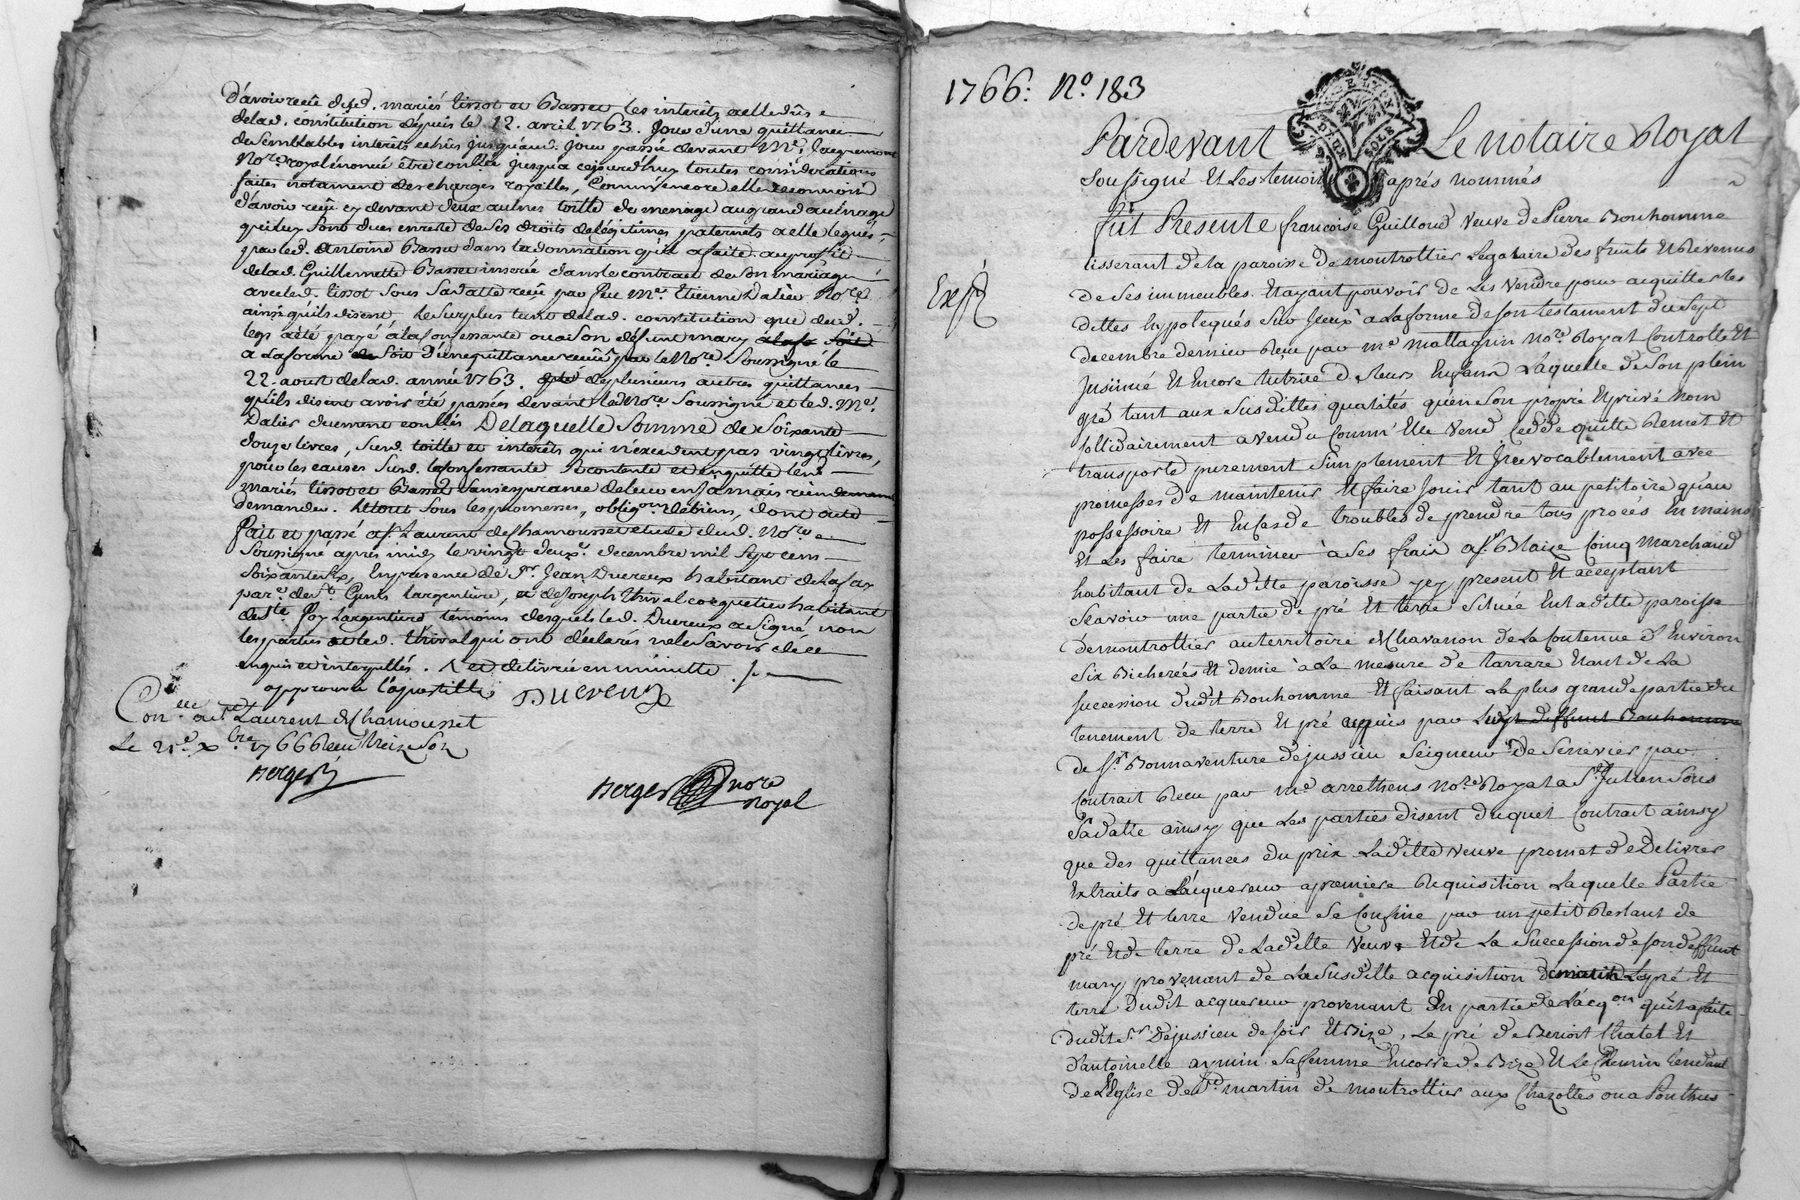 d'avoir reçû desd. mariés tissot et Basset les interêts a elle dûs
delad. constitution depuis le 12. avril 1763. Jour d'une quittance
de semblables interêts echûs jusqu'aud. jour passée devant Me. Jacquemont
Nore. royal énoncé être conllée jusqu'a cejourd'huy toutes considerations
faites notament des charges royalles, Comm'encore elle reconnoit
d'avoir reçû cy devant deux autnes toille de menage
qui luy sont dues en reste de ses droits de légitimes paternels a elle legués
par led. antoine Basset dans la donnation qu'il a faite au profit
delad. Guillemette Basset inserée dans le contract de son mariage
avec led. tissot sous sa datte reçû par feu Me. Etienne Dalier Nore.
ainsi qu'ils disent le surplus tant delad. constitution que dud.
legs a été payé a la confessante ou a son défunt mary
a la forme soit d'une quittance reçue par le Nore. soussigné le
22. aoust delad. année 1763. de plusieurs autres quittances
qu'ils disent avoir été passées devant le Nore. soussigné et led. Me.
Dalier duement conllés De laquelle somme de soixante
douze livres, susd. toille et interêts qui n'excedent pas vingt livres,
pour les causes susd. la confessante se contente et en quitte lesd.
mariés tissot et Basset sans esperance de leur en jamais rien
demander. Le tout sous les promesses, obligons. de biens, dont acte
fait et passé a St. Laurent de Chamousset etude dud. Nore.
soussigné après midy le vingt deuxe. decembre mil sept cens
soixante six, En presence de Sr. Jean Ducreux habitant de la
pare. de St. Genis l'argentiere, et de Joseph thival coquetier habitant
de Ste. Foy l'argentiere témoins desquels led. Ducreux a signé non
les parties et led. thival qui ont déclarés ne le savoir de ce
enquis et interpellés. et delivrée en minutte
approuvé l'apostille Ducreux
Con.llé au St. Laurent de Chamousset
Le 1766 Reçu treize sols
Berger
Berger nore
royal
1766: No. 183
Pardevant Le notaire Royal
soussigné Et Les temoins aprés nommés
Exp
fût Presente francoise Guilloud veuve de Pierre Bonhomme
tisserant de la paroisse de montrottier Legataire des fruits Et Revenus
de ses immeubles. Et ayant pouvoir de Les Vendre pour acquitter les
dettes hypotequés sur Iceux a La forme de son testament du sept
decembre dernier Reçu par me. mattagrin nore. Royal Controllé Et
Insinué Et Encore tutrice de Leurs Enfans Laquelle de son plein
gré tant aux susdittes qualités qu'en son propre Et privé nom
sollidairement a vendu Comm' Elle Vend Cedde quitte Remet Et
transporte purement simplement Et Irrevocablement avec
promesses de maintenir Et faire Jouir tant au petitoire qu'au
possessoire Et En cas de troubles de prendre tous procés En mains
Et Les faire terminer à ses frais a Sr. Blaise Coing marchand
habitant de Laditte paroisse icy present Et acceptant
scavoir une partie de pré Et terre située En laditte paroisse
de montrottier au territoire de Chavanon de La Contenue d'Environ
six Bicherées Et demie à La mesure de tarrare Etant de La
succession dudit Bonhomme Et faisant La plus grande partie du
tenement de terre Et pré acquis par Ledit deffunt Bonhomme
de Sr. Bonnaventure dejussieu seigneur de Senevier par
Contrait Reçu par me. arrethens nore. Royal a St. Julien sous
sa datte ainsy que Les parties disent duquel Contrait ainsy
que des quittances du prix Laditte veuve promet de Delivrer
Extraits a L'acquereur a premiere Requisition Laquelle Partie
de pré Et terre Vendue se Confine par un petit Restant de
pré Et de terre de Laditte Veuve Et de La succession de son deffunt
mary provenant de La susditte acquisition de matin Le pré Et
terre Dudit acquereur provenant En partie de L'acqon qu'il a faite
dudit sr. Dejussieu de soir Et Bize, Le pré de Benoist Chatel Et
d'antoinette aymin sa femme Encorre de Bize Et Le Chemin tendant
de L'Eglise de St. martin de montrottier aux Chazottes ou a Ponthus